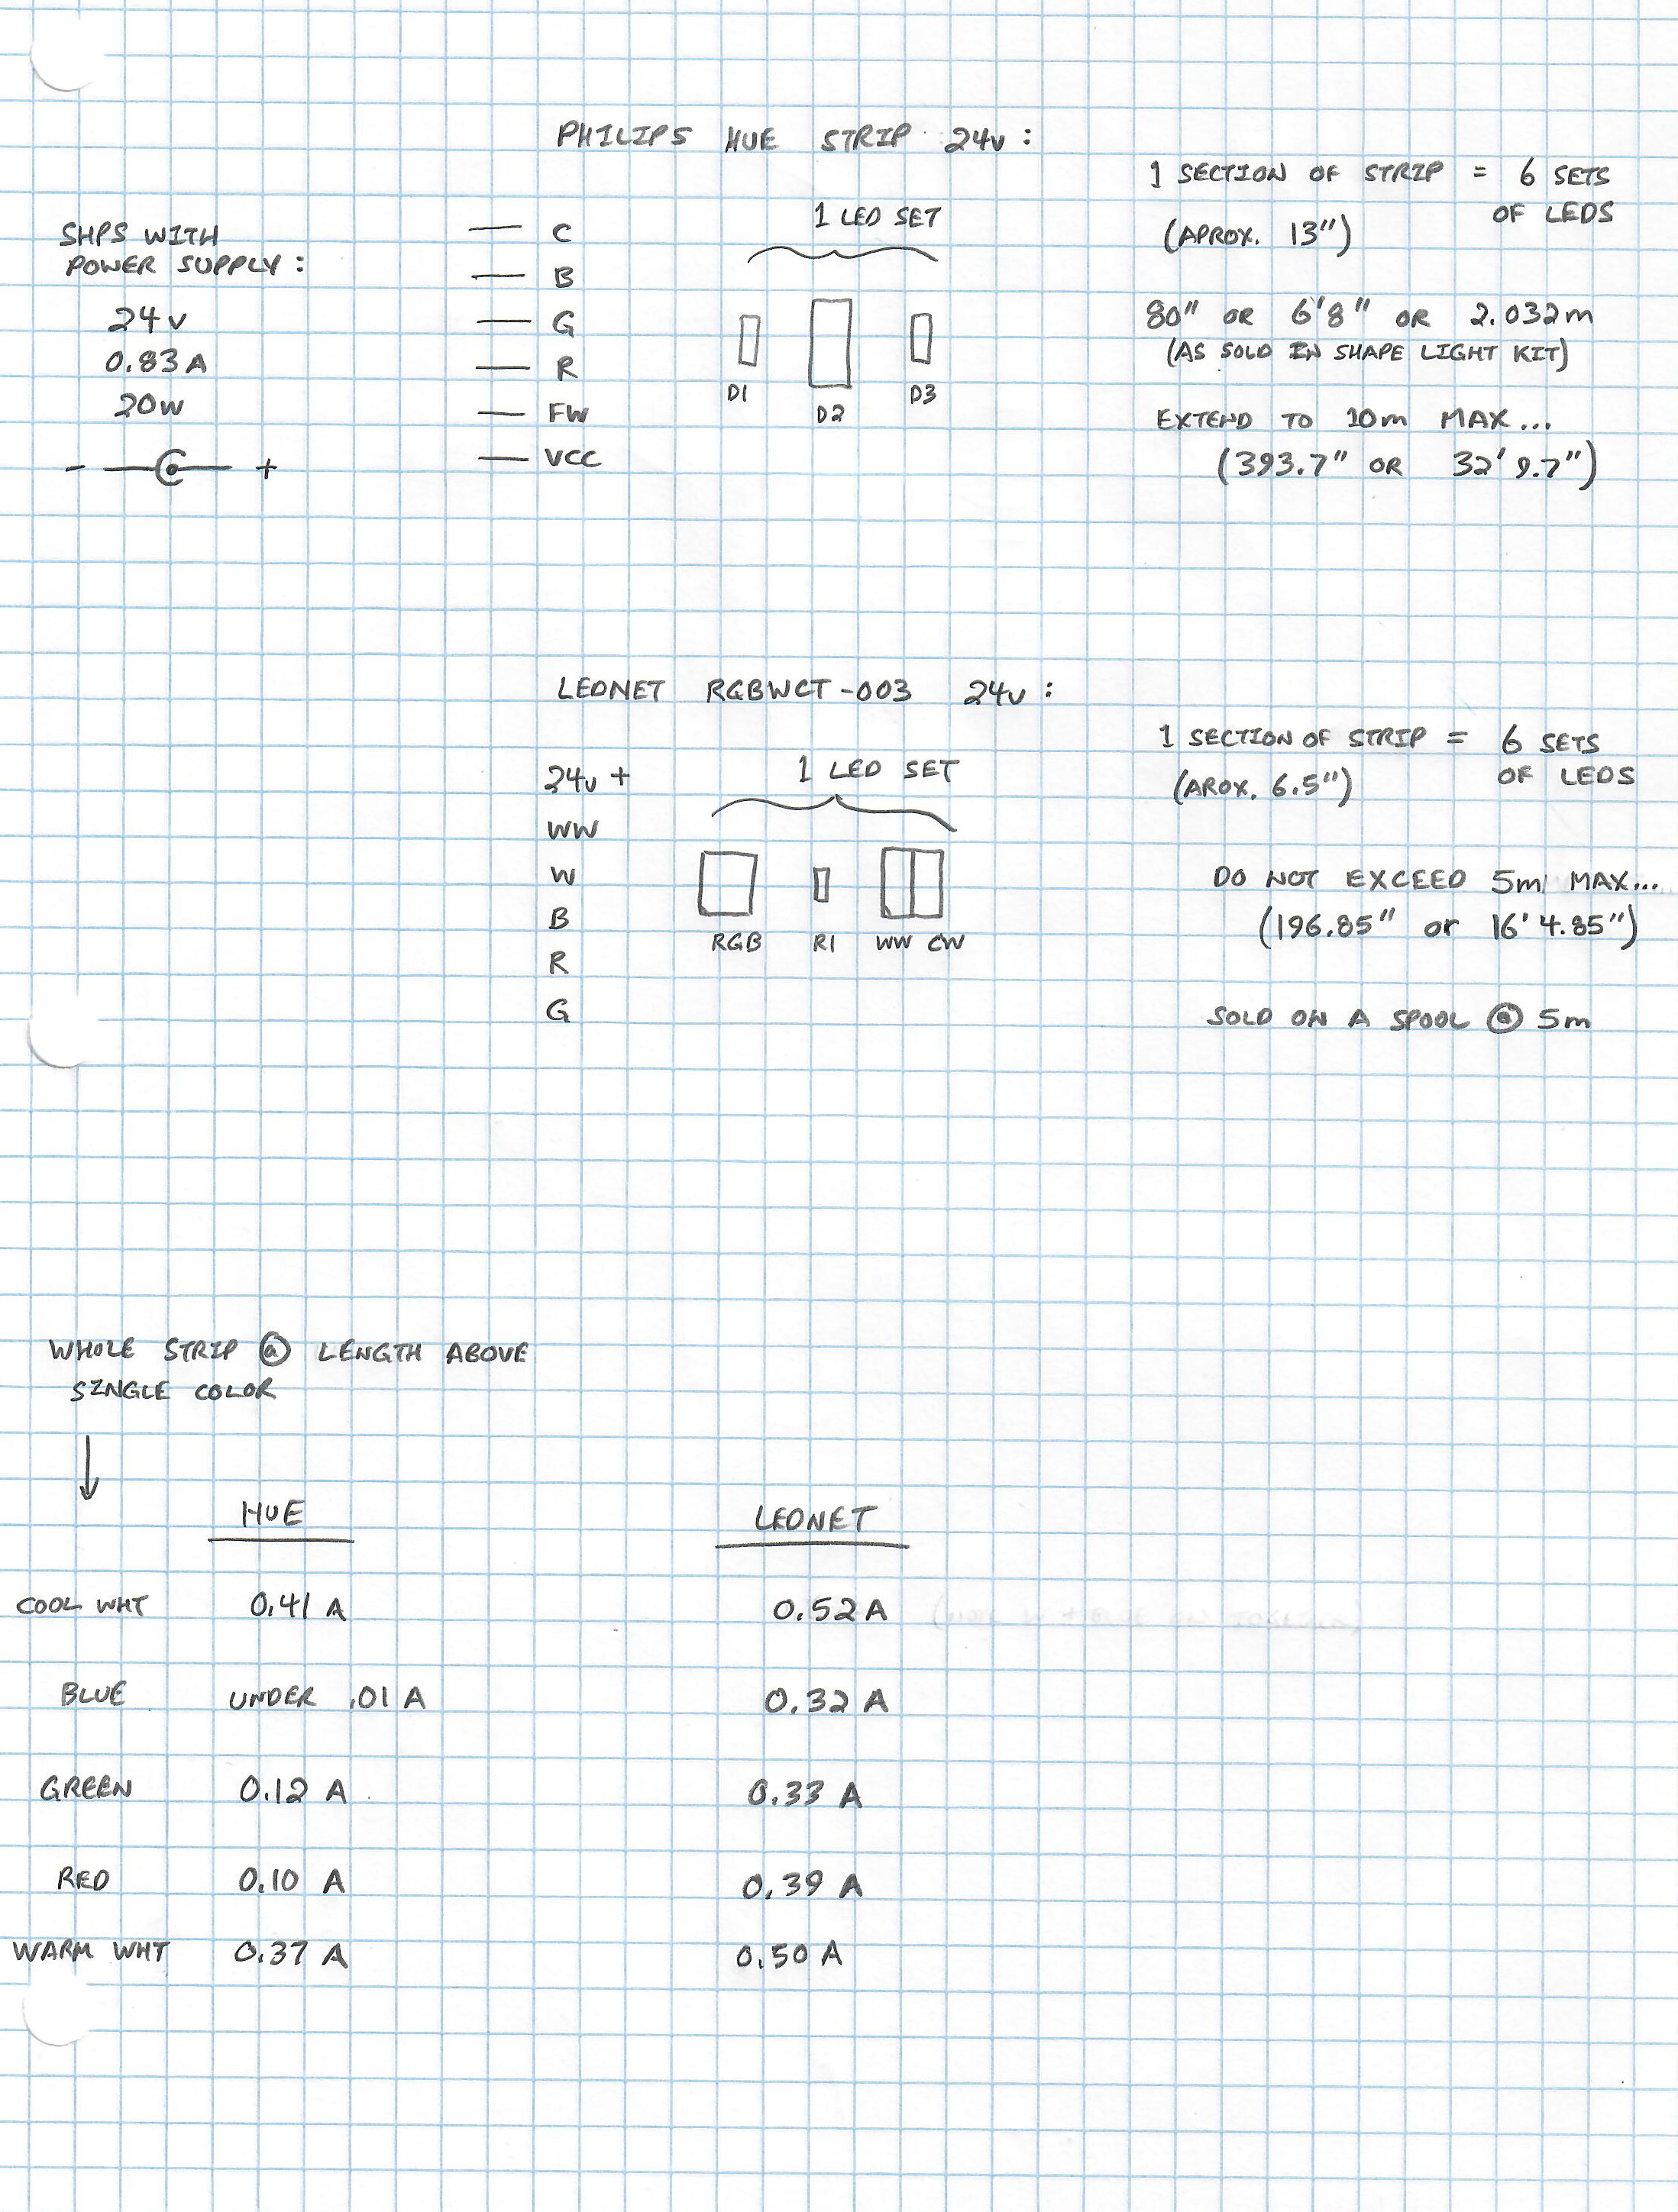 PHILIPS HUE STRIP 24v :
SHPS WITH
POWER SUPPLY :
24v
0.83 A
20w
- +
C
B
G
R
FW
VCC
1 LED SET
D1 D2 D3
1 SECTION OF STRIP = 6 SETS
OF LEDS
(APROX. 13")
80" OR 6'8" OR 2.032m
(AS SOLD IN SHAPE LIGHT KIT)
EXTEND TO 10m MAX...
(393.7" OR 32' 9.7")
LEDNET RGBWCT-003 24v :
24v +
WW
W
B
R
G
1 LED SET
RGB R1 WW CW
1 SECTION OF STRIP = 6 SETS
OF LEDS
(AROX. 6.5")
DO NOT EXCEED 5m MAX...
(196.85" or 16' 4.85")
SOLD ON A SPOOL @ 5m
WHOLE STRIP @ LENGTH ABOVE
SINGLE COLOR
HUE LEDNET
COOL WHT 0.41 A 0.52 A
BLUE UNDER .01 A 0.32 A
GREEN 0.12 A 0.33 A
RED 0.10 A 0.39 A
WARM WHT 0.37 A 0.50 A